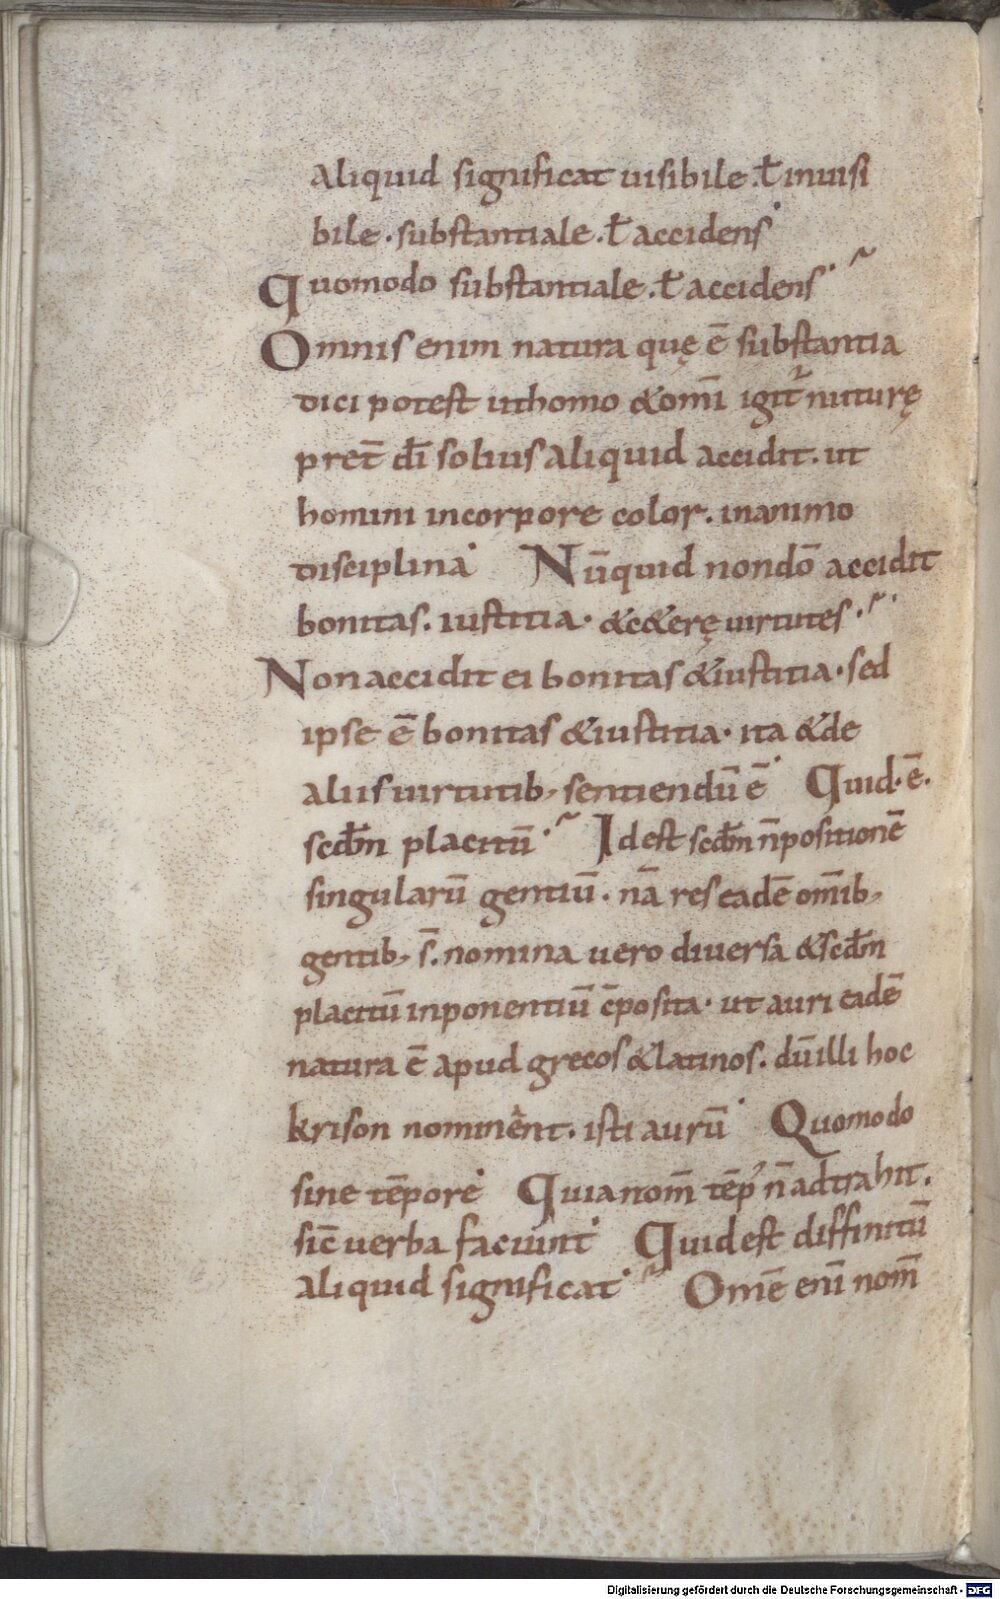 aliquid significat uisibile .ł inuisi
bile · substantiale .ł accidens
Quomodo substantiale .ł accidens
Omnis enim natura quę ē substantia
dici potest ut homo & om̄i igit̄ nuturę
pret̄ dī solius aliquid accidit. ut
homini incorpore color. in animo
disciplina Nūquid non dō accidit
bonitas. iustitia. & c&erę uirtutes.
Non accidit ei bonitas & iustitia · sed
ipse ē bonitas & iustitia · ita & de
aliis uirtutib; sentiendū ē Quid · ē.
scd̄m placitū Id est scd̄m n̄positionē
singularū gentiū. nā res eadē om̄ib;
gentib; s̄. nomina uero diuersa & scd̄m
placitū inponentiū c̄posita · ut auri eadē
natura ē apud grecos & latinos. dū illi hoc
krison nominēnt. isti aurū Quomodo
sine tēpore Quia nom̄ tēp' n̄ adtrahit.
sic̄ uerba faciunt Quid est diffinitū
aliquid significat Om̄e enī nom̄
Digitalisierung gefördert durch die Deutsche Forschungsgemeinschaft - DFG